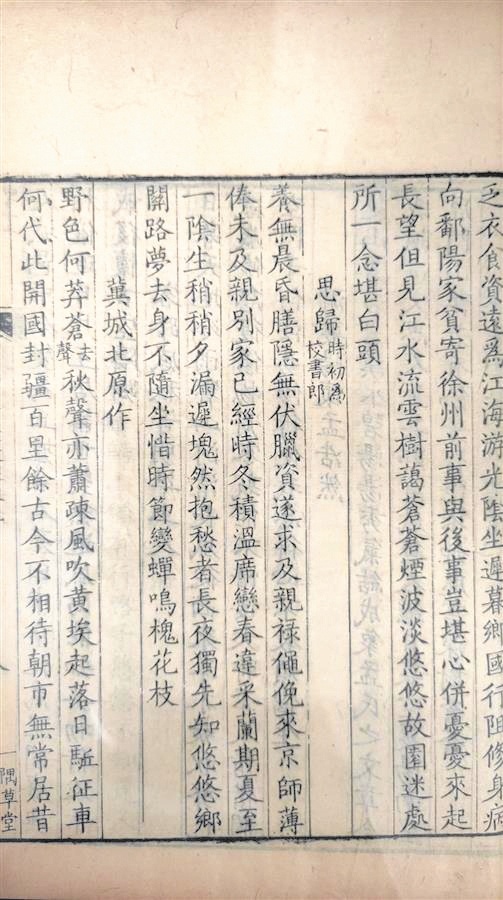 乏衣食資遠爲江海游光陰坐遲暮鄉國行阻修身病
向鄱陽家貧寄徐州前事與後事豈堪心併憂憂來起
長望但見江水流雲樹藹蒼蒼煙波淡悠悠故園迷處
所一念堪白頭
思歸時初爲校書郎
養無晨昏膳隱無伏臘資遂求及親祿僶俛來京師薄
俸未及親別家已經時冬積溫席戀春違采蘭期夏至
一陰生稍稍夕漏遲塊然抱愁者長夜獨先知悠悠鄉
關路夢去身不隨坐惜時節變蟬鳴槐花枝
冀城北原作
野色何莽蒼去聲秋聲亦蕭疎風吹黃埃起落日駈征車
何代此開國封疆百里餘古今不相待朝市無常居昔
一隅草堂